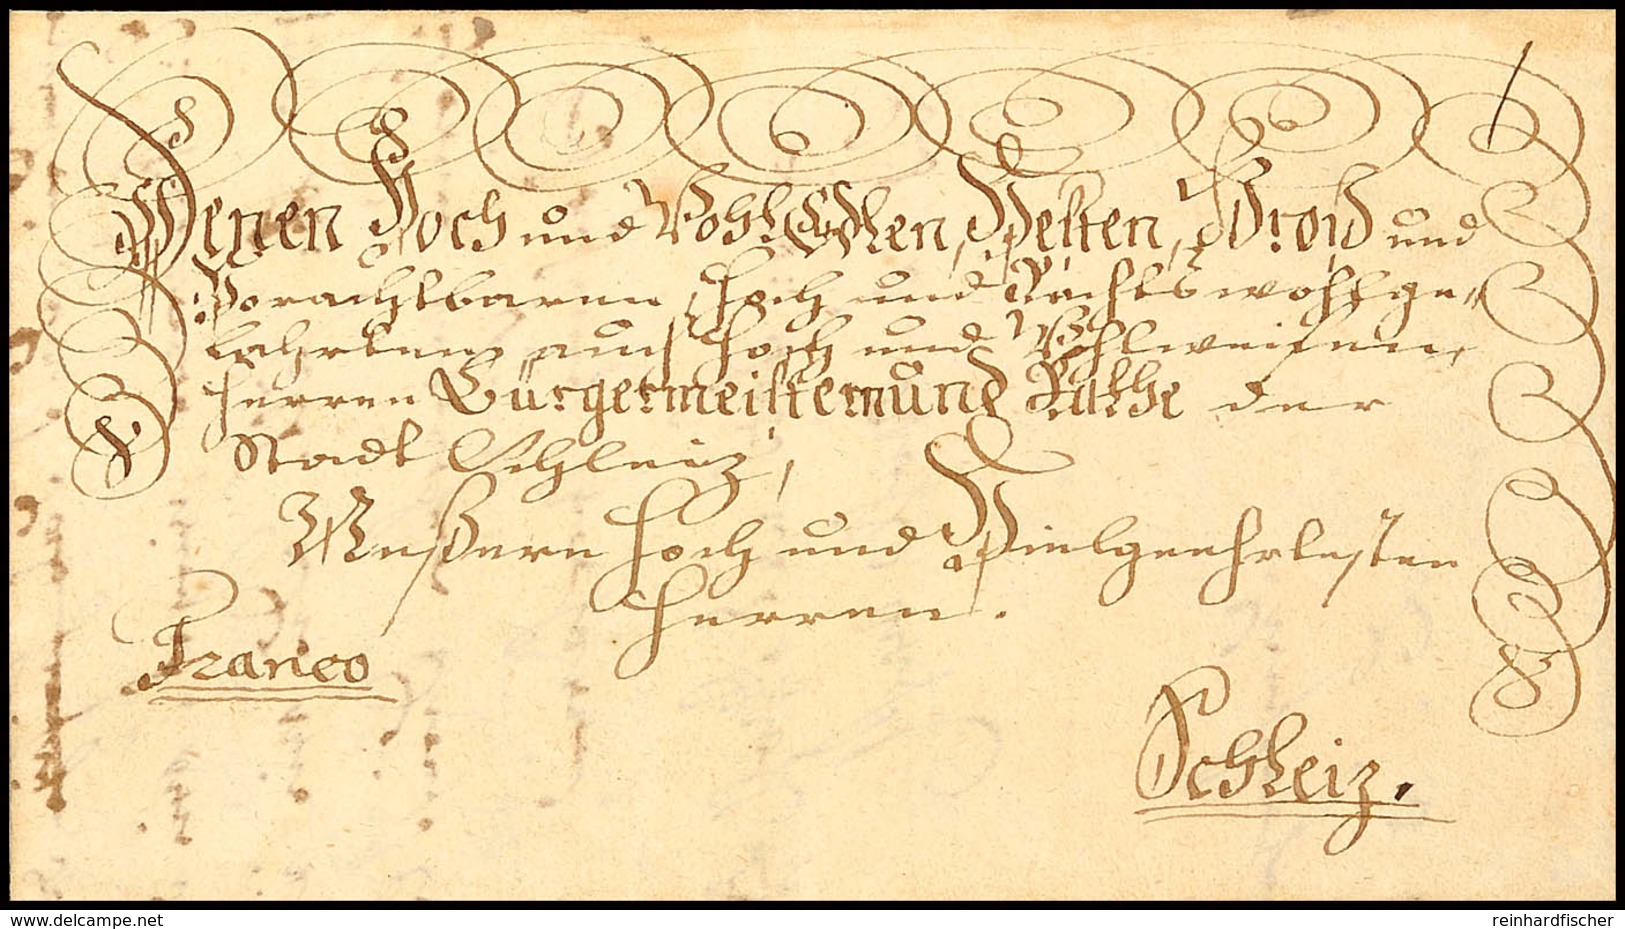 Denen Hoch und WohlEdlen, Vesten, Groß und
Vorachtbaren, Hoch und Rechts wohlge=
lahrten, auch Hoch und Wohlweisen,
Herren Bürgermeistern und Rathe der
Stadt Schleiz,
Meßern Hoch und Vielgeehrtesten
Herren.
Franco
Schleiz.
www.delcampe.net
reinhardfischer